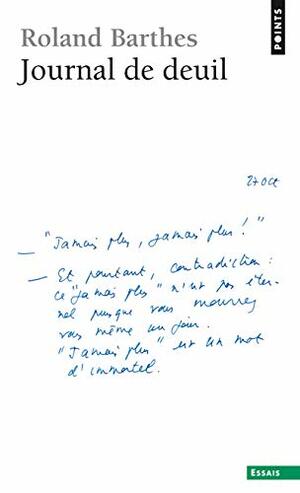 Roland Barthes
Journal de deuil
POINTS
27 oct
— "Jamais plus, jamais plus !"
— Et pourtant, contradiction :
ce "jamais plus" n'est pas éter-
nel puisque vous mourrez
vous même un jour.
"Jamais plus" est un mot
d'immortel.
ESSAIS